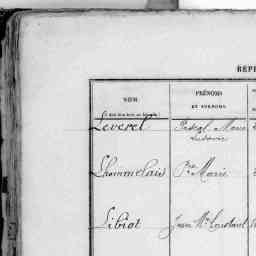 RÉPE
NOM.
PRÉNOMS
ET SURNOMS.
Leverel Pascal Marie
Ludovic
Lhommelais Pre Marie
Libiot Jean Me Constant